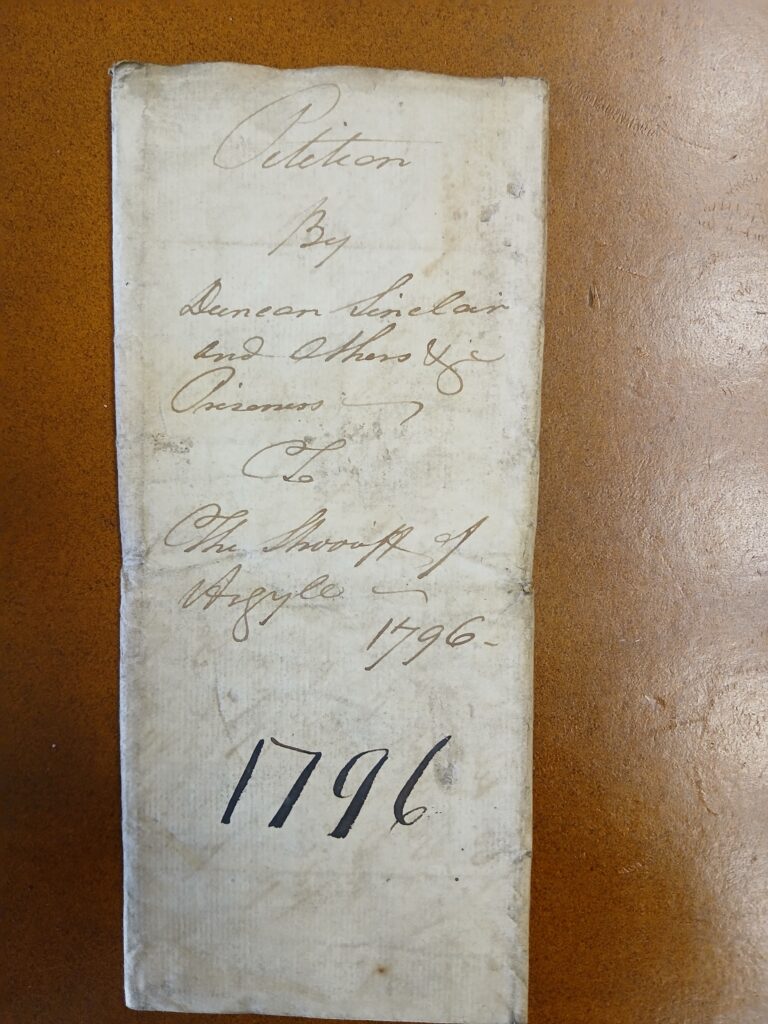 Petition
By
Duncan Sinclair
and Others &c
Prisoners
To
The Shirriff of
Argyle
1796-
1796